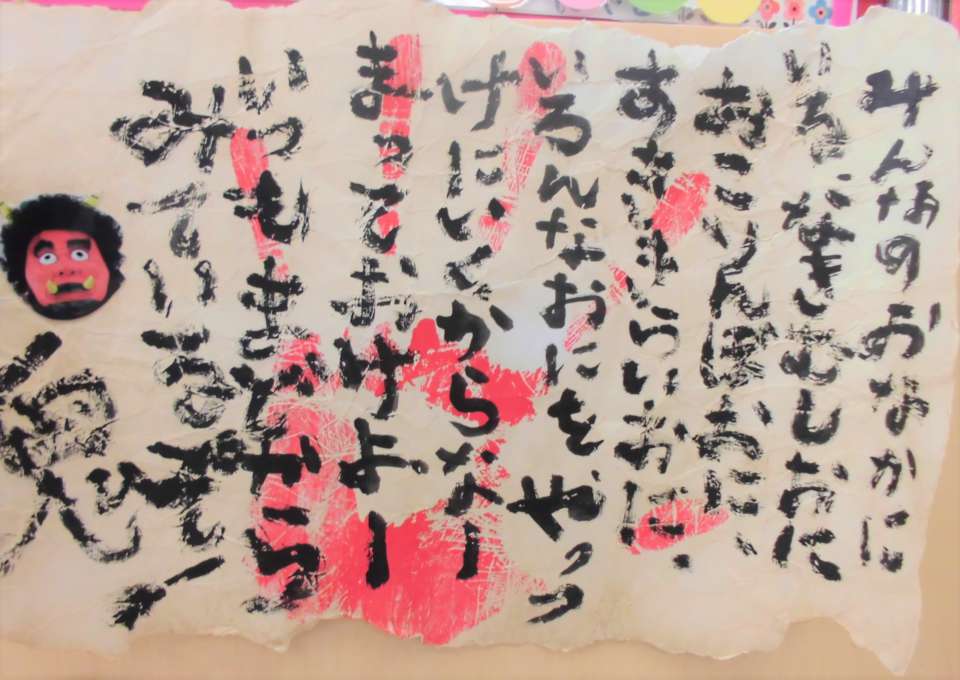 みんなのおなかに
いる、なきむしおに
おこりんぼおに、
すききらいおに、
いろんなおにを、やっつ
けにいくからなー
まっておけよー
いつもまどから
みているぞー!
鬼